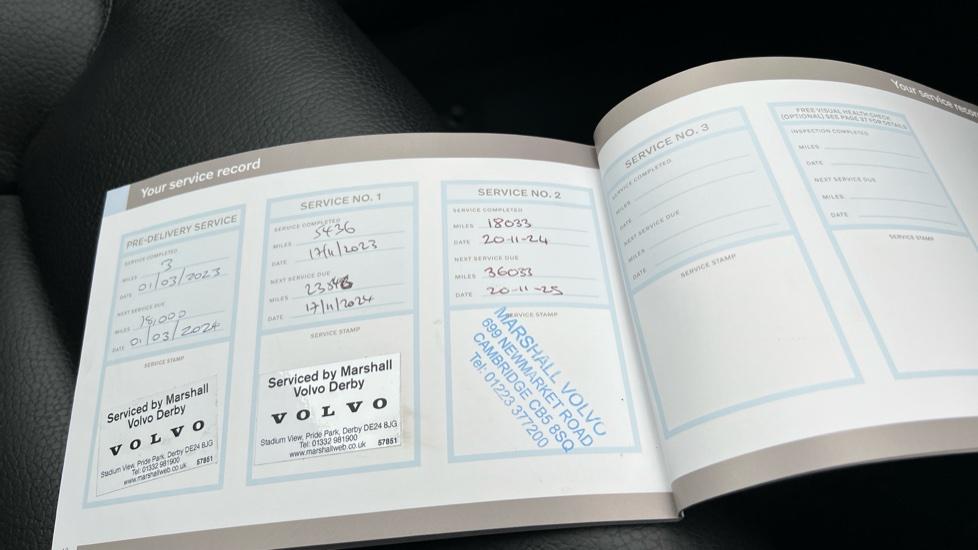 Your service record
PRE-DELIVERY SERVICE
SERVICE COMPLETED
MILES 3
DATE 01/03/2023
NEXT SERVICE DUE
MILES 18,000
DATE 01/03/2024
SERVICE STAMP
Serviced by Marshall
Volvo Derby
VOLVO
Stadium View, Pride Park, Derby DE24 8JG
Tel: 01332 981900
www.marshallweb.co.uk 57851
SERVICE NO. 1
SERVICE COMPLETED
MILES 5436
DATE 17/11/2023
NEXT SERVICE DUE
MILES
DATE 17/11/2024
SERVICE STAMP
Serviced by Marshall
Volvo Derby
VOLVO
Stadium View, Pride Park, Derby DE24 8JG
Tel: 01332 981900
www.marshallweb.co.uk 57851
SERVICE NO. 2
SERVICE COMPLETED
MILES 18033
DATE 20-11-24
NEXT SERVICE DUE
MILES 36033
DATE 20-11-25
SERVICE STAMP
MARSHALL VOLVO
699 NEWMARKET ROAD
CAMBRIDGE CB5 8SQ
Tel: 01223 377200
Your service record
SERVICE NO. 3
SERVICE COMPLETED
MILES
DATE
NEXT SERVICE DUE
MILES
DATE
SERVICE STAMP
FREE VISUAL HEALTH CHECK
(OPTIONAL) SEE PAGE 37 FOR DETAILS
INSPECTION COMPLETED
MILES
DATE
NEXT SERVICE DUE
MILES
DATE
SERVICE STAMP